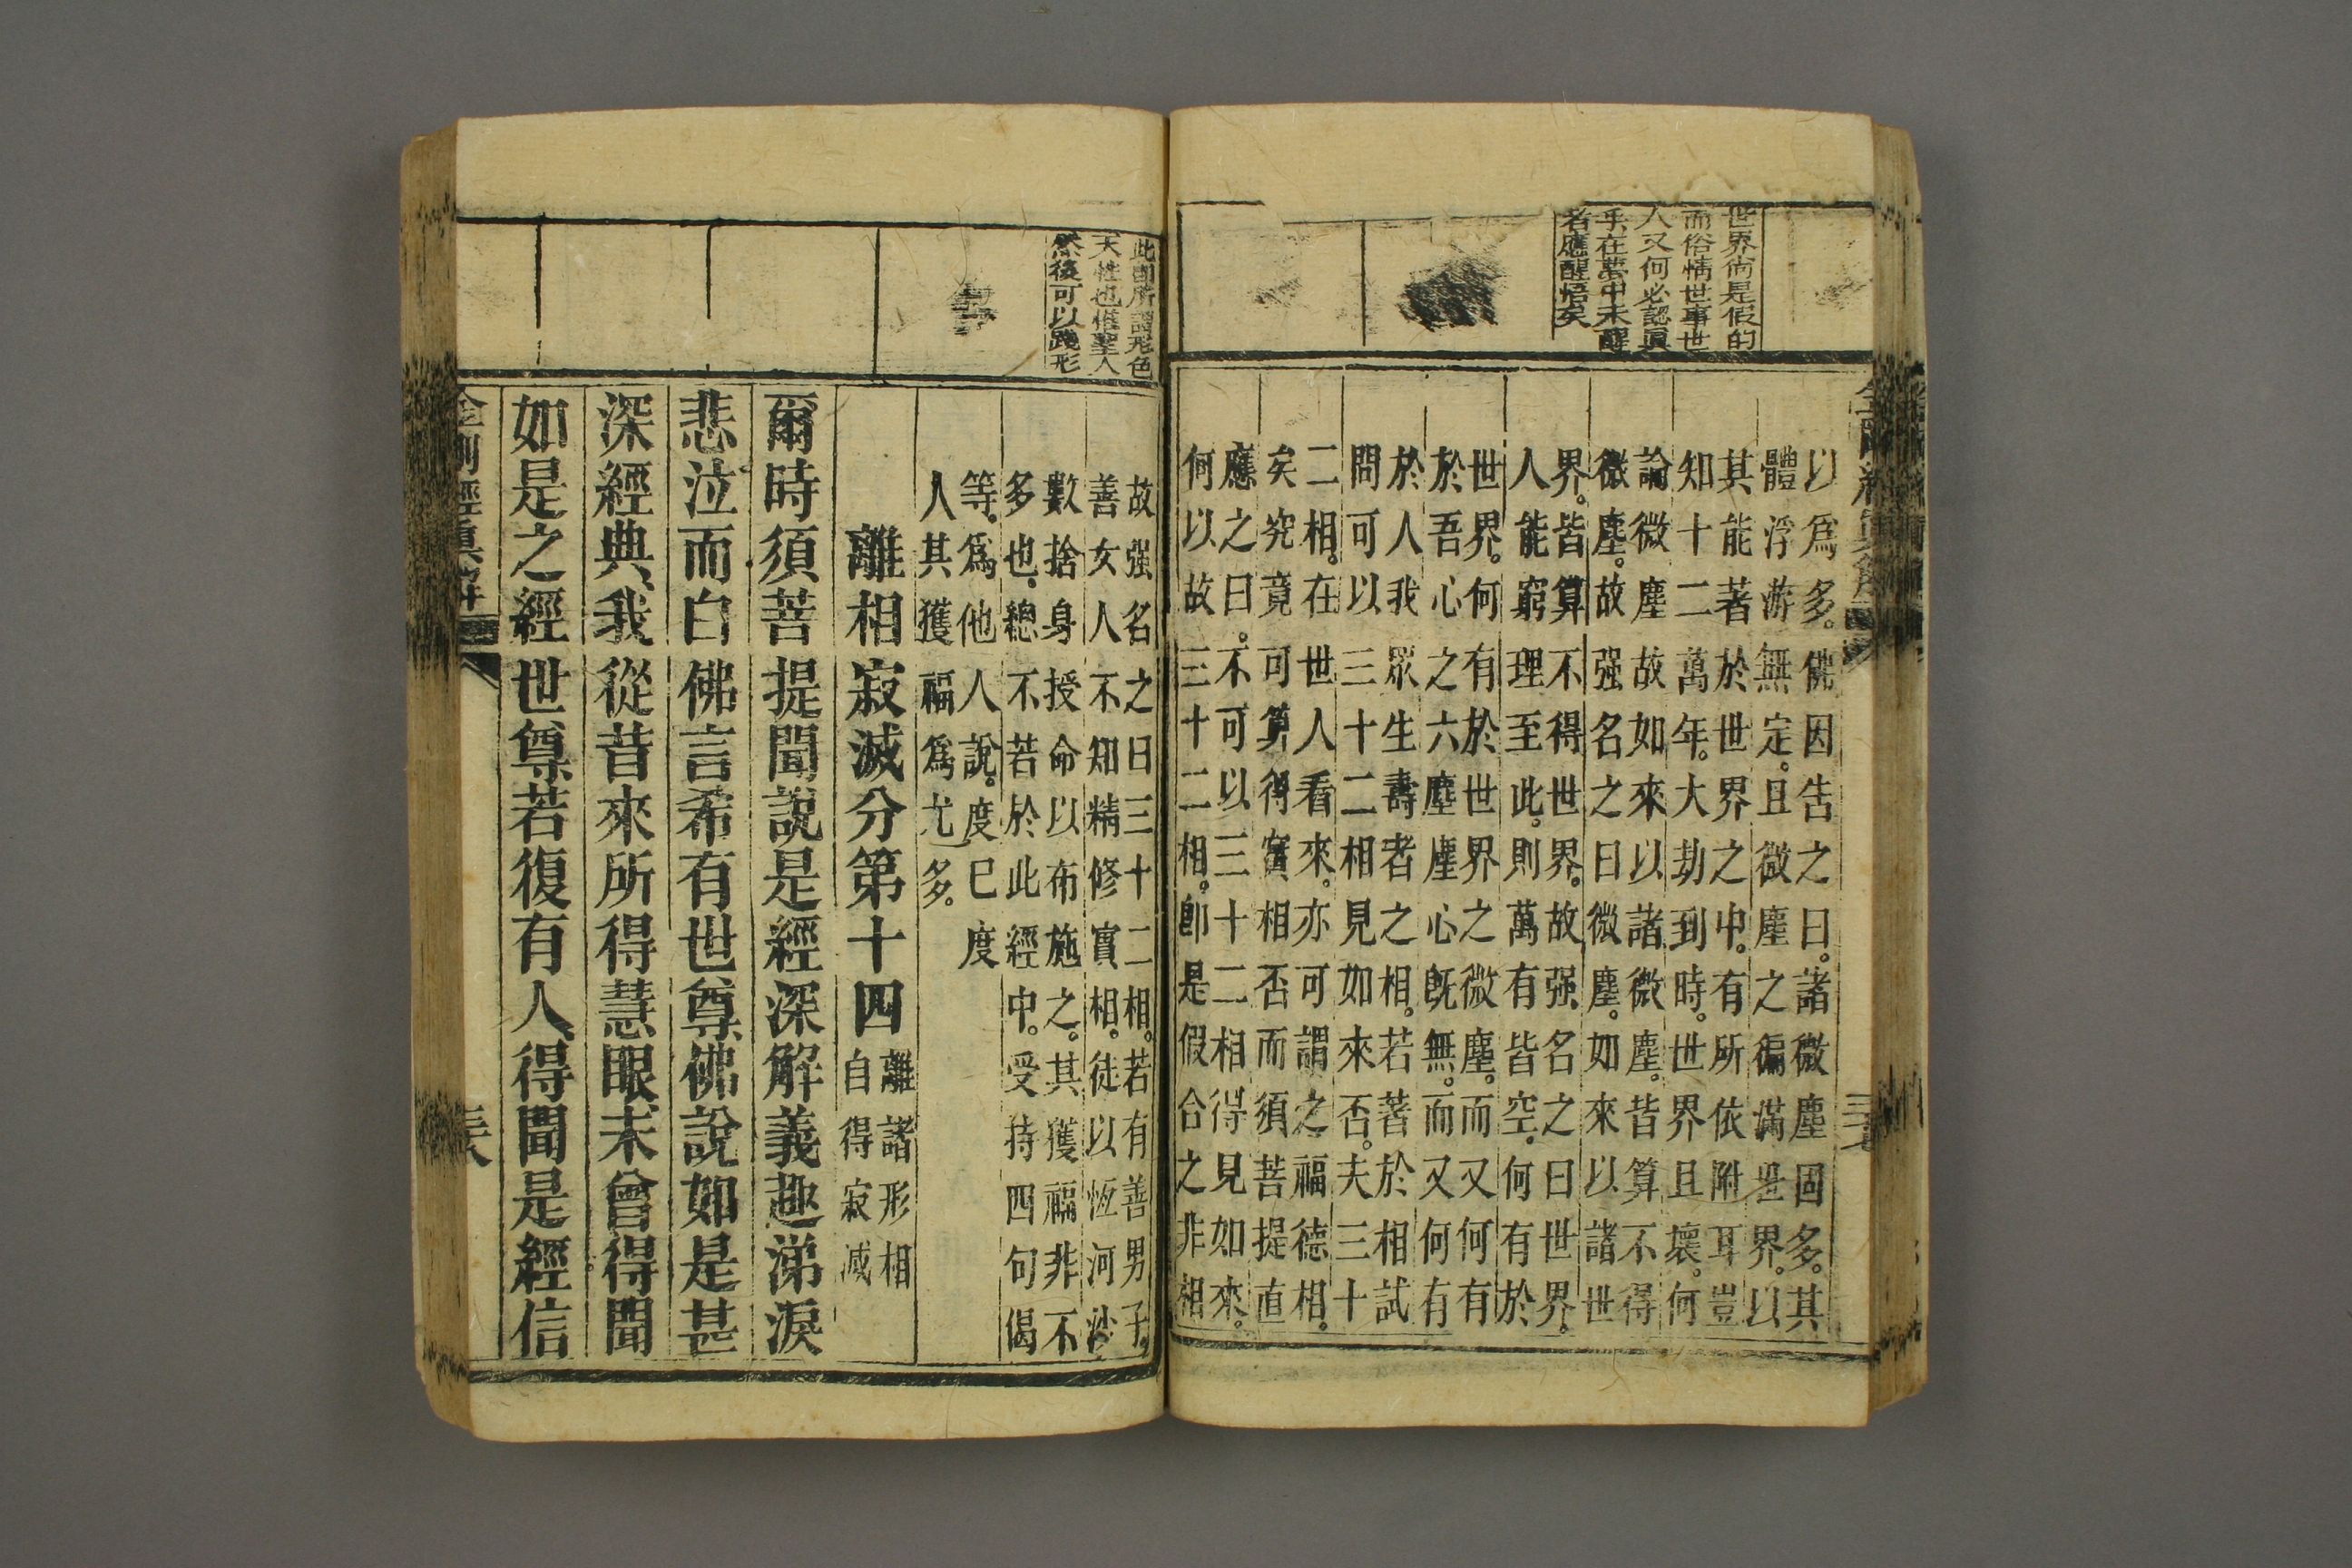 世界尚是假的
而俗情世事世
人又何必認眞
乎在夢中未醒
者應醒悟矣
以爲多。佛因告之曰。諸微塵固多。其
體浮游無定。且微塵之徧滿世界。以
其能著於世界之中。有所依附耳豈
知十二萬年。大劫到時。世界且壞。何
論微塵故如來以諸微塵。皆算不得
微塵。故强名之曰微塵。如來以諸世
界。皆算不得世界。故强名之曰世界。
人能窮理至此。則萬有皆空。何有於
世界。何有於世界之微塵。而又何有
於吾心之六塵塵心旣無。而又何有
於人我眾生壽者之相。若著於相試
問可以三十二相見如來否。夫三十
二相。在世人看來。亦可謂之福德相。
矣究竟可算得實相否而須菩提直
應之曰。不可以三十二相得見如來。
何以故三十二相。卽是假合之非相
此卽所謂形色
天性也惟聖人
然後可以踐形
故强名之曰三十二相。若有善男子。
善女人不知精修實相。徒以恆河沙
數捨身授命以布施之。其獲福非不
多也。總不若於此經中。受持四句偈
等。爲他人說。度已度
人其獲福爲尤多。
離相寂滅分第十四
離諸形相
自得寂滅
爾時須菩提聞說是經深解義趣涕淚
悲泣而白佛言希有世尊佛說如是甚
深經典我從昔來所得慧眼未曾得聞
如是之經世尊若復有人得聞是經信
金剛經眞解